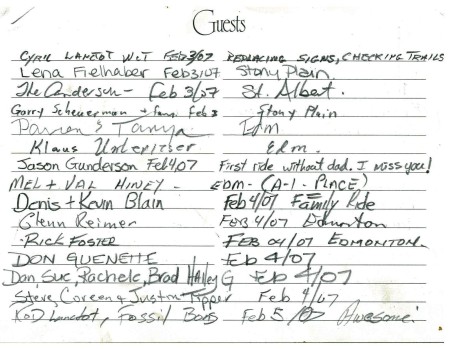 Guests
CYRIL LANTOT WCT FEB 3/07 REPLACING SIGNS, CHECKING TRAILS
Lena Fielhaber Feb 3/07 Stony Plain
The Andersen - Feb 3/07 St. Albert.
Garry Scheuerman + fam. Feb 3 Stony Plain
& Tanya Edm
Klaus Edm.
Jason Gunderson Feb 4/07 First ride without dad. I miss you!
MEL + VAL HINEY - EDM - (A-1 - PLACE)
Denis + Kevin Blain Feb 4/07 Family Ride
Glenn Reimer FEB 4/07 Edmonton
RICK FOSTER FEB 04/07 EDMONTON.
DON GUENETTE Feb 4/07
Dan, Sue, Rachele, Brad Hailey G Feb 4/07
Steve, Coreen & Justin Tipper Feb 4/07
Rod Lanctot, Fossil Boys Feb 5/07 Awesome!